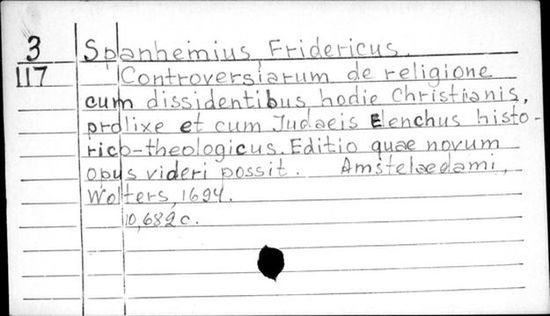 3 Spanhemius, Fridericus.
117 Controversiarum de religione
cum dissidentibus hodie Christianis,
prolixe et cum Judaeis Elenchus histo-
rico-theologicus. Editio quae novum
opus videri possit. Amstelaedami,
Wolters, 1694.
10,682 c.